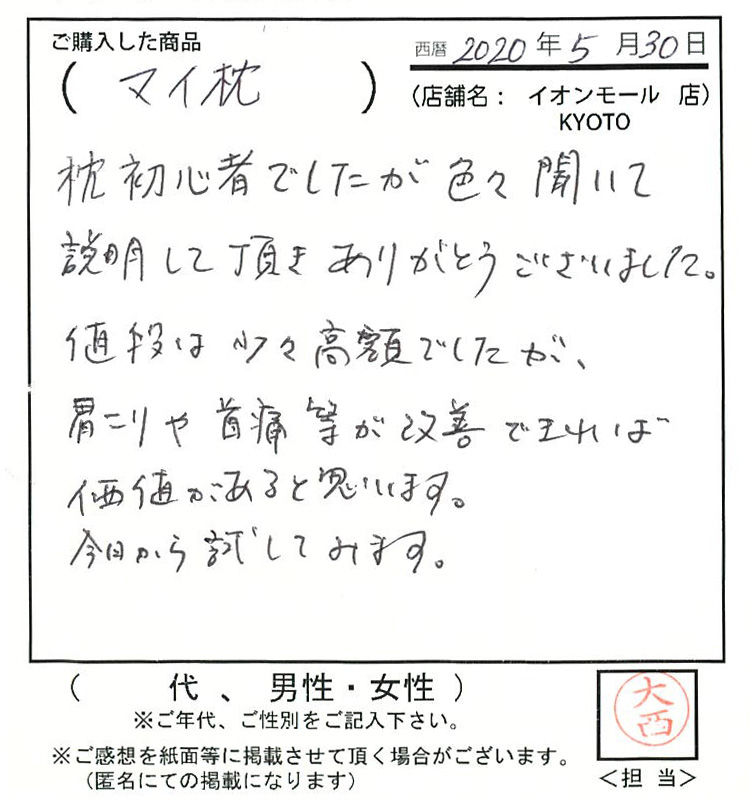 ご購入した商品
西暦 2020年5月30日
(マイ枕)
(店舗名： イオンモール 店)
KYOTO
枕初心者でしたが色々聞いて
説明して頂きありがとうございました。
値段は少々高額でしたが、
肩こりや首痛等が改善できれば
価値があると思います。
今日から試してみます。
( 代、男性・女性)
※ご年代、ご性別をご記入下さい。
※ご感想を紙面等に掲載させて頂く場合がございます。
(匿名にての掲載になります)
大西
＜担当＞